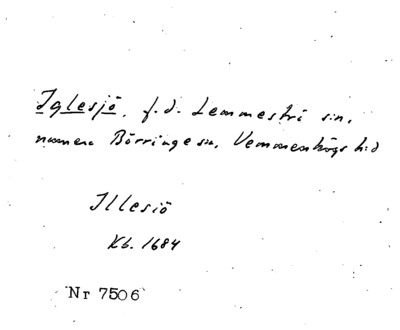 Iglesjö, f.d. Lemmeströ sn,
numera Börringe sn, Vemmenhögs h:d
Illesiö
Kb. 1684
Nr 7506